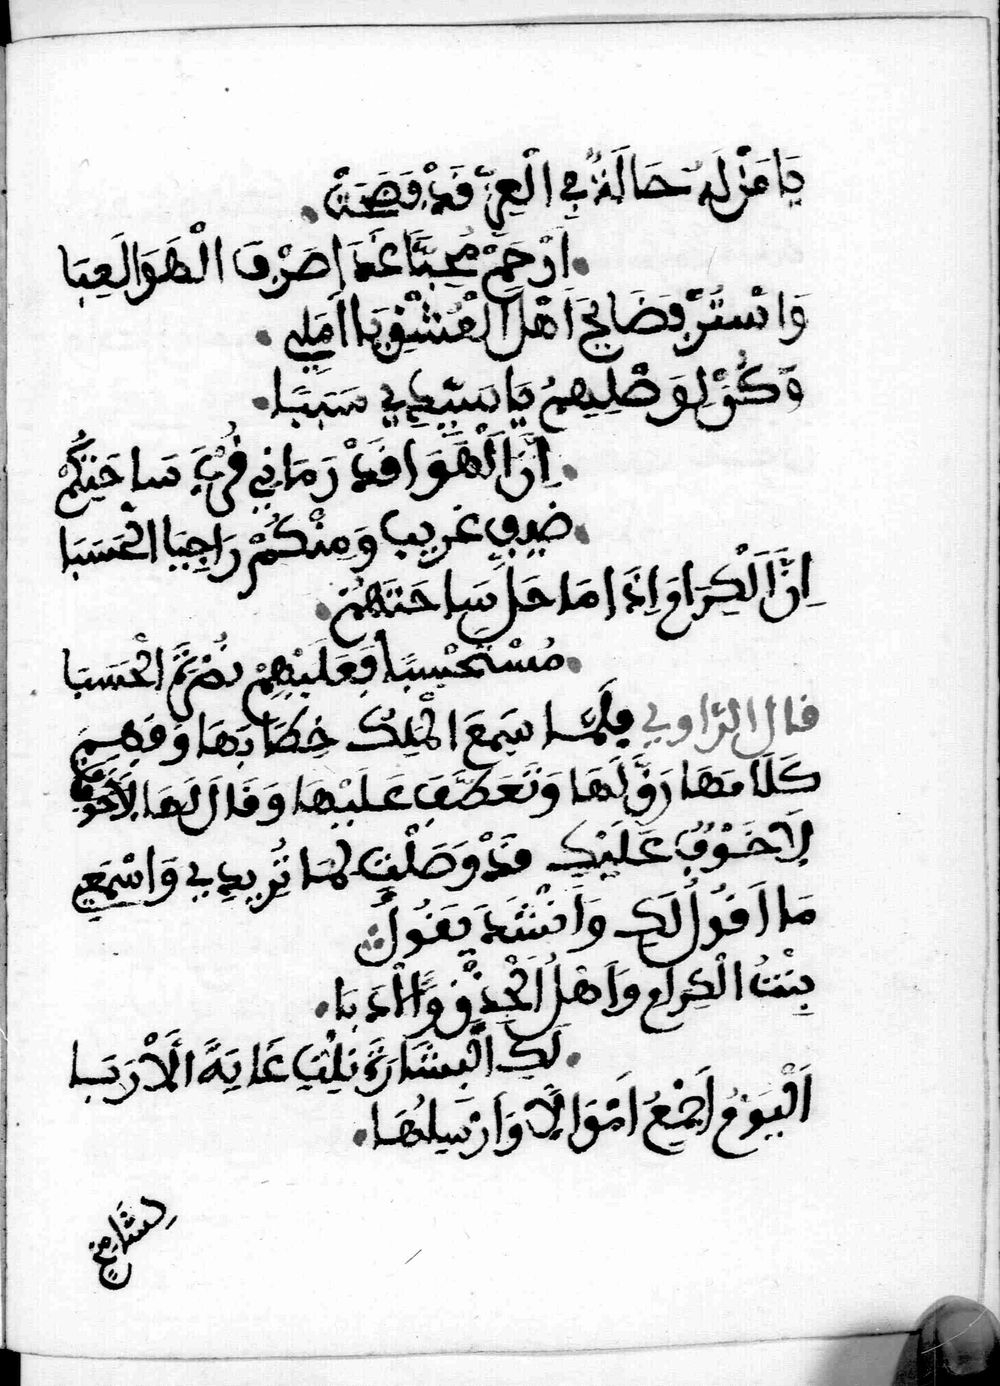 يَا مَنْ لَهُ حَالَةٌ فِي الْعِزِّ قَدْ وَصَبَتْ
اَرْحَمْ مُحِبًّا غَدَا صَرْفَ الْهَوَا لَعِبَا
وَاسْتُرْ فَضَائِحَ اَهْلَ الْعُشْقِ يَا اَمَلِي
وَكُنْ لِوَصْلِيهِمُ يَا سَيِّدِي سَبَبَا
اِنَّ الْهَوَا قَدْ رَمَانِي قُرْبَ سَاحَتِكُمْ
ضَيْفٍ غَرِيبٍ وَمِنْكُمْ رَاجِيًا الْحَسَبَا
اِنَّ الْكِرَامَ اِذَا مَا حَلَّ سَاحَتَهُمْ
مُسْتَحْسِبًا فَعَلَيْهِمْ الْحَسَبَا
قال الرَّاوِي فَلَمَّا سَمِعَ الْمَلِكُ خِطَابَهَا وَفَهِمَ
كَلَامَهَا رَقَّ لَهَا وَتَعَطَّفَ عَلَيْهَا وَقَالَ لَهَا لَا خَوْفٌ
لَا خَوْفٌ عَلَيْكِ قَدْ وَصَلْتِ لِمَا تُرِيدِي وَاسْمَعِي
مَا اَقُولُ لَكِ وَاَنْشَدَ يَقُولُ
بِنْتُ الْكِرَامِ وَاَهْلُ الْحِذْقِ وَالْاَدَبَا
لَكِ الْبَشَارَةُ نِلْتِ غَايَةَ الْاَرَبَا
اَلْيَوْمَ اَجْمَعُ اَمْوَالًا وَاَرْسِلُهَا
لِشَامِخٍ